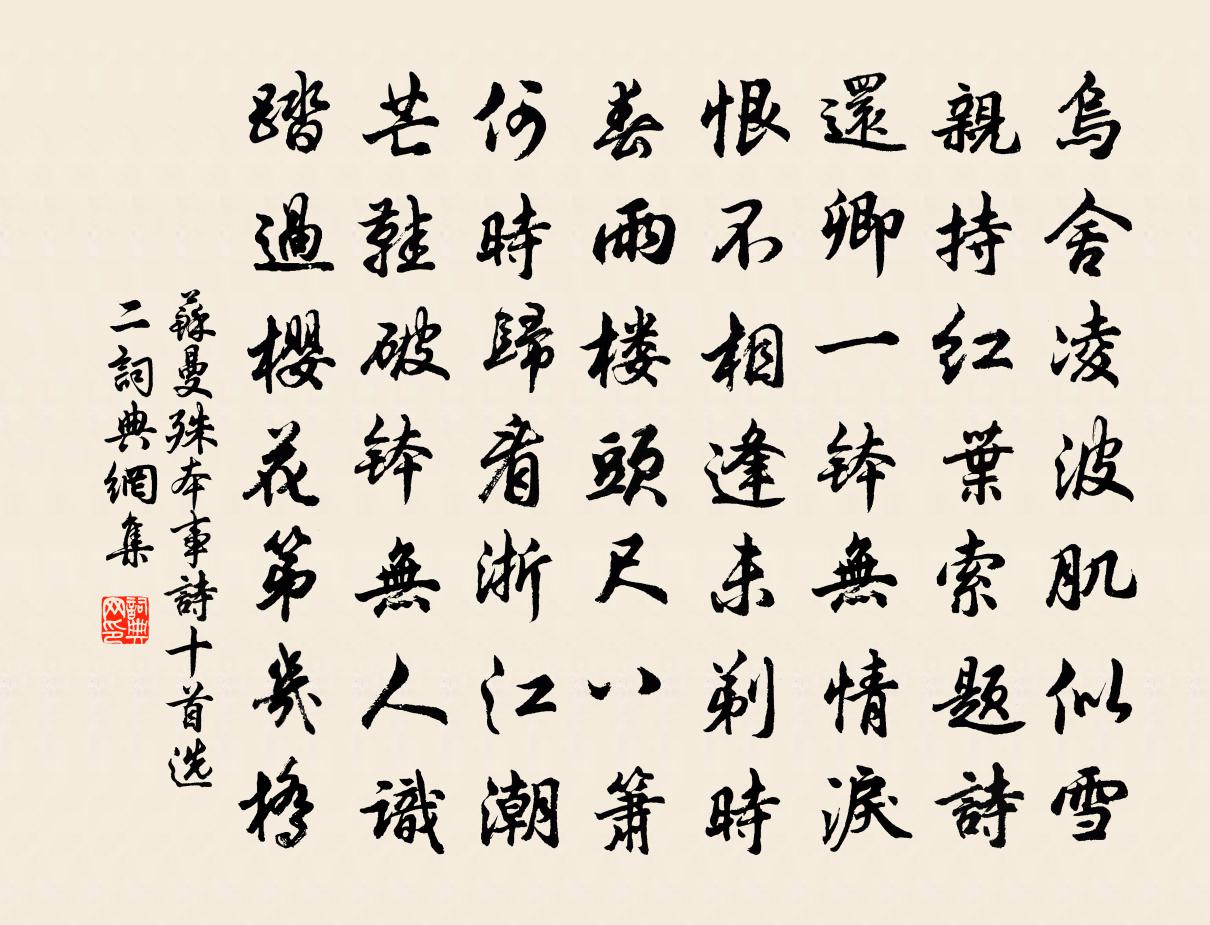 烏舍凌波肌似雪
親持紅葉索題詩
還卿一鉢無情淚
恨不相逢未剃時
春雨楼頭尺八簫
何時歸看浙江潮
芒鞋破鉢無人識
踏過櫻花第幾橋
蘇曼殊本事詩十首选
二詞典網集
詞典网印